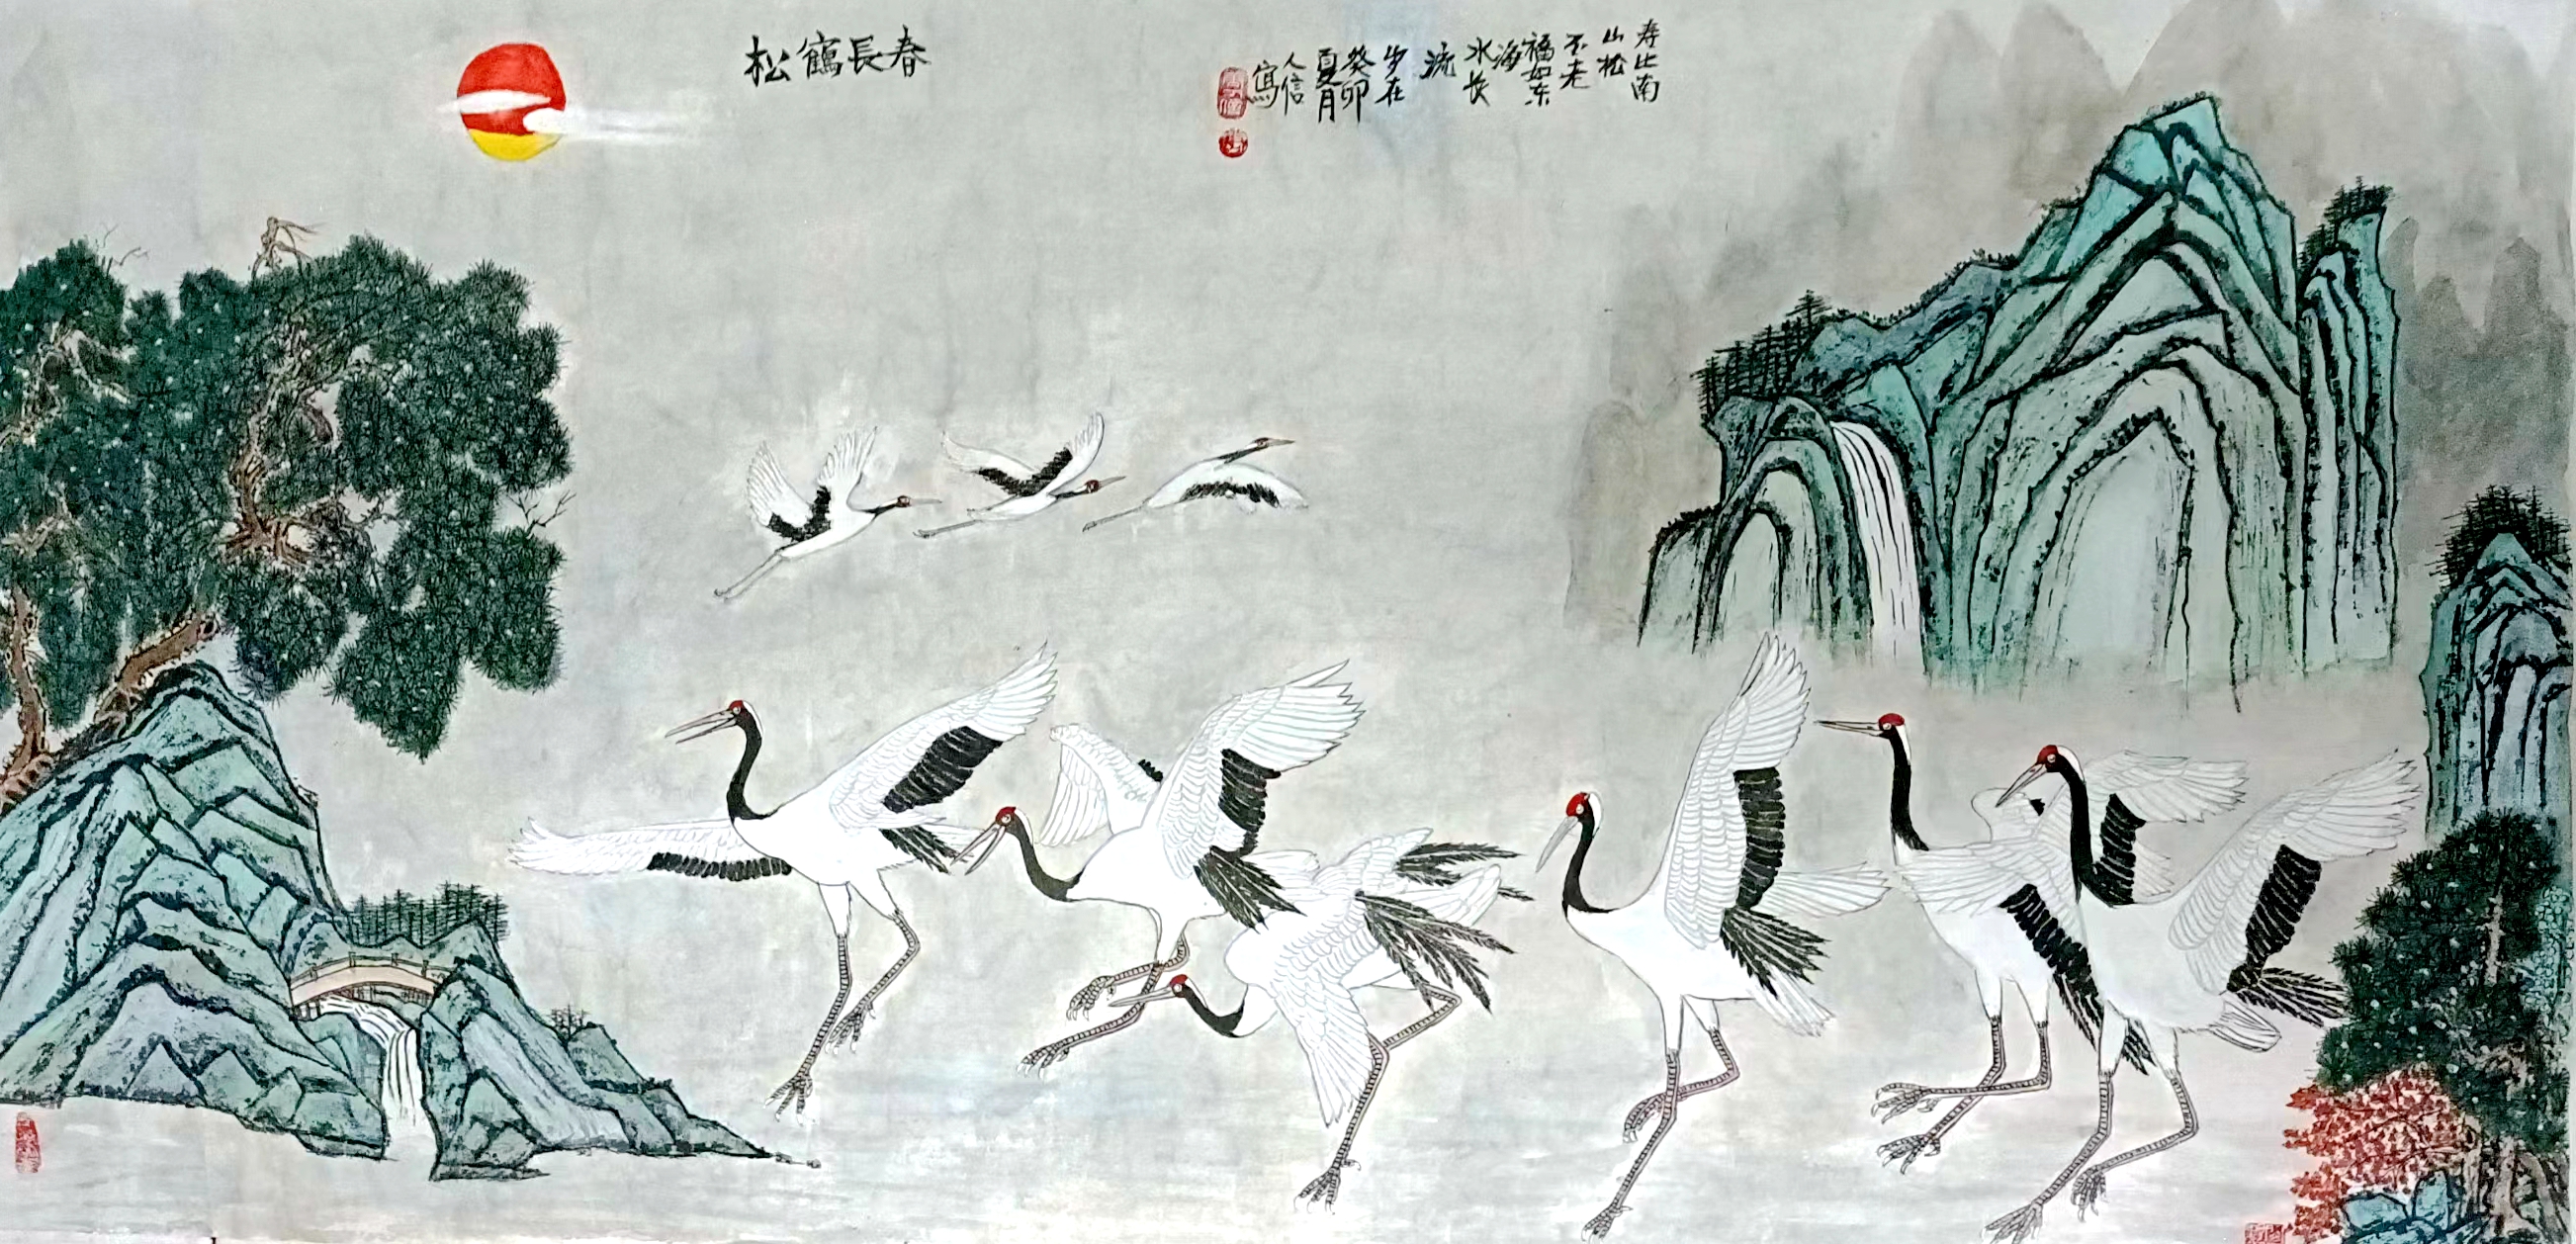 松鶴長春
寿比南
山松
不老
福如东
海
水长
流
岁在
癸卯
夏月
人信
寫